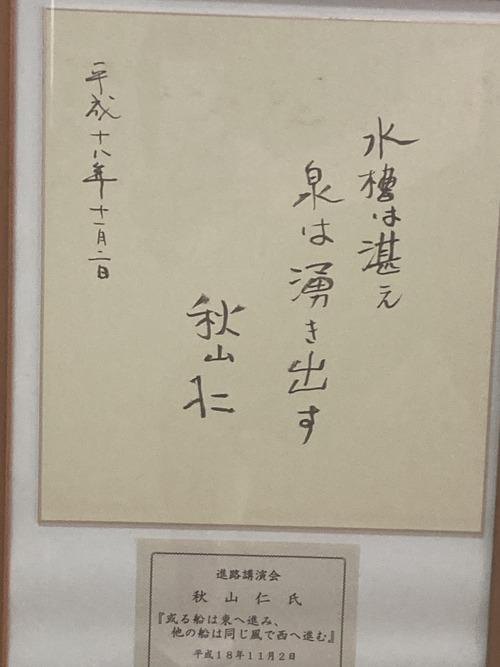 水槽は湛え
泉は湧き出す
秋山仁
平成十八年十一月二日
進路講演会
秋山仁氏
『或る船は東へ進み、
他の船は同じ風で西へ進む』
平成18年11月2日